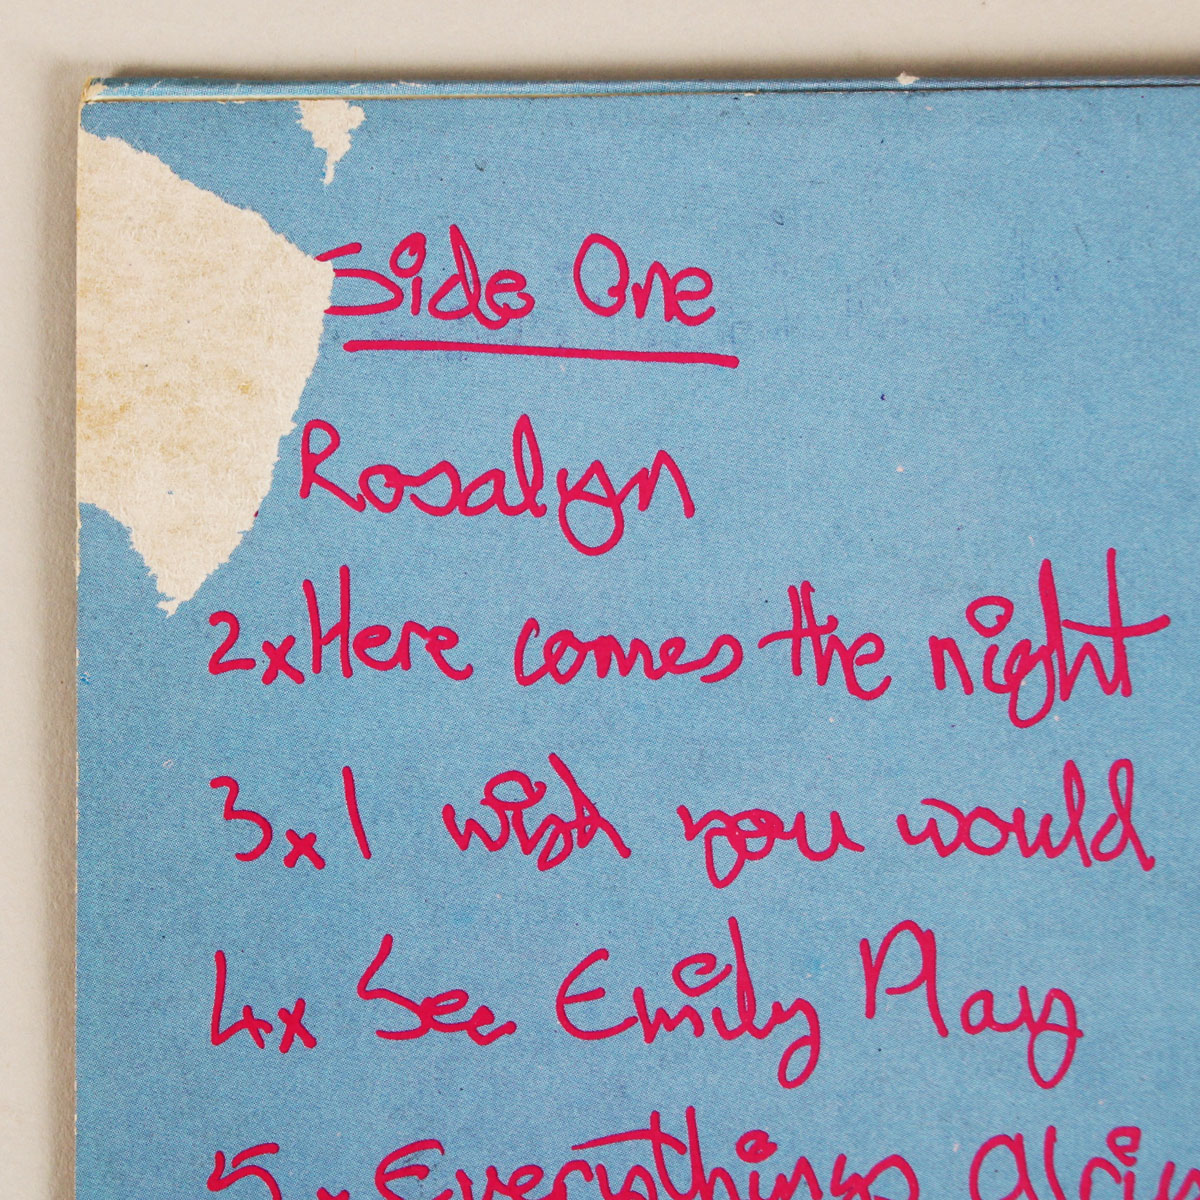 Side One
Rosalyn
2x Here comes the night
3x I wish you would
4x See Emily Play
5x Everything's